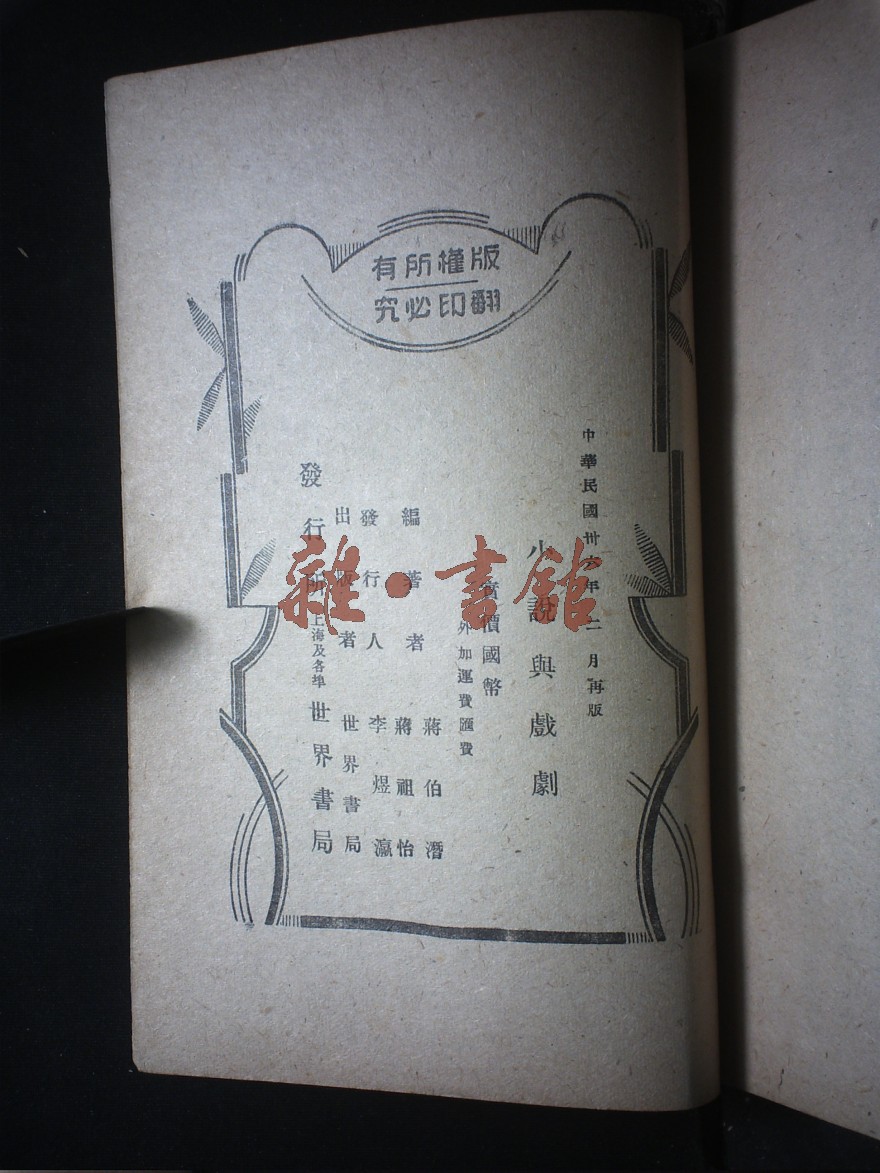 版權所有
翻印必究
中華民國卅六年二月再版
小說與戲劇
實價國幣
外加運費匯費
編著者 蔣伯潛
蔣祖怡
發行人 李煜瀛
出版者 世界書局
發行所 上海及各埠 世界書局
雜·書館